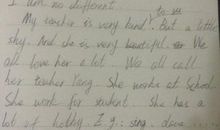 I am no different
to us
My teacher is very kind. But a little
shy. And she is very beautiful. We
all love her a lot. We all call
her teacher Yang. She works at School.
She work for student. She has a
lot of hobby. E.g.: sing, dance